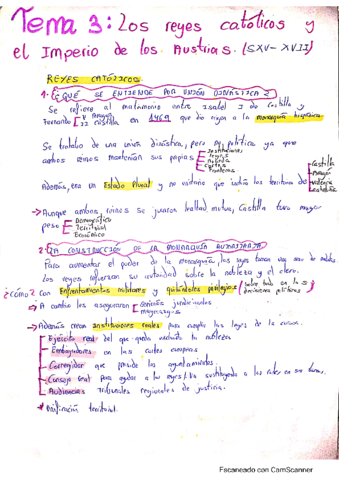 Tema 3: Los reyes católicos y
el Imperio de los Austrias. (SXV-XVII)
REYES CATÓLICOS
1. ¿QUÉ SE ENTIENDE POR UNIÓN DINÁSTICA?
Se refiere al matrimonio entre Isabel I de Castilla y
Fernando V Aragón
II Castilla en 1469 que dio origen a la monarquía hispánica.
Se trataba de una unión dinástica, pero no política ya que
ambos reinos mantenían sus propias
Instituciones
leyes
moneda
Cortes
Fronteras
Además, era un Estado Plural y no unitario que unía los territorios de
Castilla
Aragón
Valencia
Cataluña
→ Aunque ambos reinos se juraron lealtad mutua, Castilla tuvo mayor
peso
Demográfico
Territorial
Económico
2. LA CONSTRUCCIÓN DE LA MONARQUÍA AUTORITARIA
Para aumentar el poder de la monarquía, los reyes
Los reyes refuerzan su autoridad sobre la nobleza y el clero.
¿Cómo? Con Enfrentamientos militares y quitándoles privilegios (sobre todo en las
decisiones políticas)
→ A cambio les aseguraron
señoríos jurisdiccionales
mayorazgos
→ Además crearon instituciones reales para cumplir las leyes de la corona.
Ejército real del que queda excluida la nobleza
Embajadores en las cortes europeas
Corregidor que preside los ayuntamientos.
Consejo Real para ayudar a los reyes sustituyendo a las
Audiencias Tribunales regionales de justicia.
Unificación territorial.
Escaneado con CamScanner